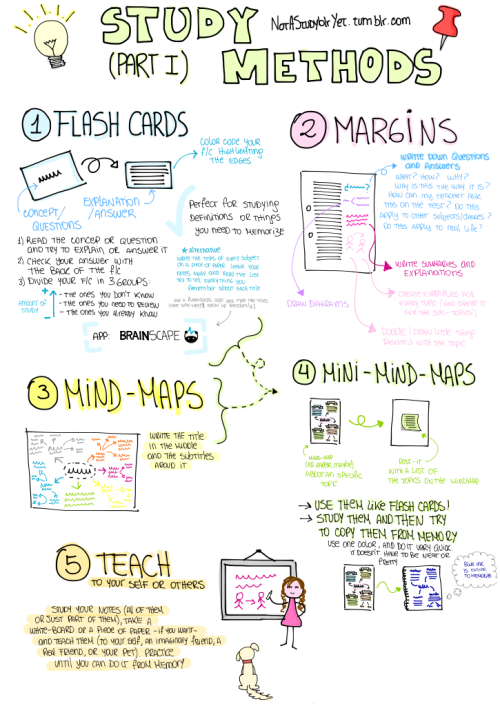 STUDY
(PART I) METHODS
NotAStudyblrYet.tumblr.com
1 FLASH CARDS
COLOR CODE YOUR
F/C HIGHLIGHTING
THE EDGES
CONCEPT/
QUESTIONS
EXPLANATION
/ANSWER
Perfect for studying
definitions or things
you need to memorise
1) READ THE CONCEP OR QUESTION
AND TRY TO EXPLAIN, OR ANSWER IT
2) CHECK YOUR ANSWER WITH
THE BACK OF THE F/C
3) DIVIDE YOUR F/C IN 3 GROUPS:
AMOUNT OF
STUDY
- THE ONES YOU DON'T KNOW
- THE ONES YOU NEED TO REVIEW
- THE ONES YOU ALREADY KNOW
* ALTERNATIVE
APP: BRAINSCAPE
2 MARGINS
WRITE DOWN QUESTIONS
AND ANSWERS
WHAT? HOW? WHY?
WHY IS THIS THE WAY IT IS?
HOW CAN MY TEACHER ASK
THIS ON THE TEST? DO THIS
APPLY TO OTHER SUBJECTS/CLASSES?
DO THIS APPLY TO REAL LIFE?
WRITE SUMMARIES AND
EXPLANATIONS
DRAW DIAGRAMS
CREATE
EVERY TOPIC
FOR THE SUB-TOPICS)
DOODLE / DRAW LITTLE THINGS
RELATED WITH THE TOPIC
3 MIND-MAPS
WRITE THE TITLE
IN THE MIDDLE
AND THE SUBTITLES
AROUD IT
4 MINI-MIND-MAPS
MIND-MAP
ABOUT AN SPECIFIC
TOPIC
POST-IT
WITH A LIST OF
THE TOPICS ON THE MINDMAP
→ USE THEM LIKE FLASH CARDS!
→ STUDY THEM AND THEN TRY
TO COPY THEM FROM MEMORY
USE ONE COLOR, AND DO IT VERY QUICK.
IT DOESN'T HAVE TO BE NEAT OR
PRETTY
BLUE INK
IS EASIER
TO MEMORISE
5 TEACH
TO YOUR SELF OR OTHERS
STUDY YOUR NOTES (ALL OF THEM
OR JUST PART OF THEM), TAKE A
WHITE-BOARD OR A PIECE OF PAPER - IF YOU WANT-
AND TEACH THEM (TO YOUR SELF, AN IMAGINARY FRIEND, A
REAL FRIEND, OR YOUR PET). PRACTICE
UNTIL YOU CAN DO IT FROM MEMORY